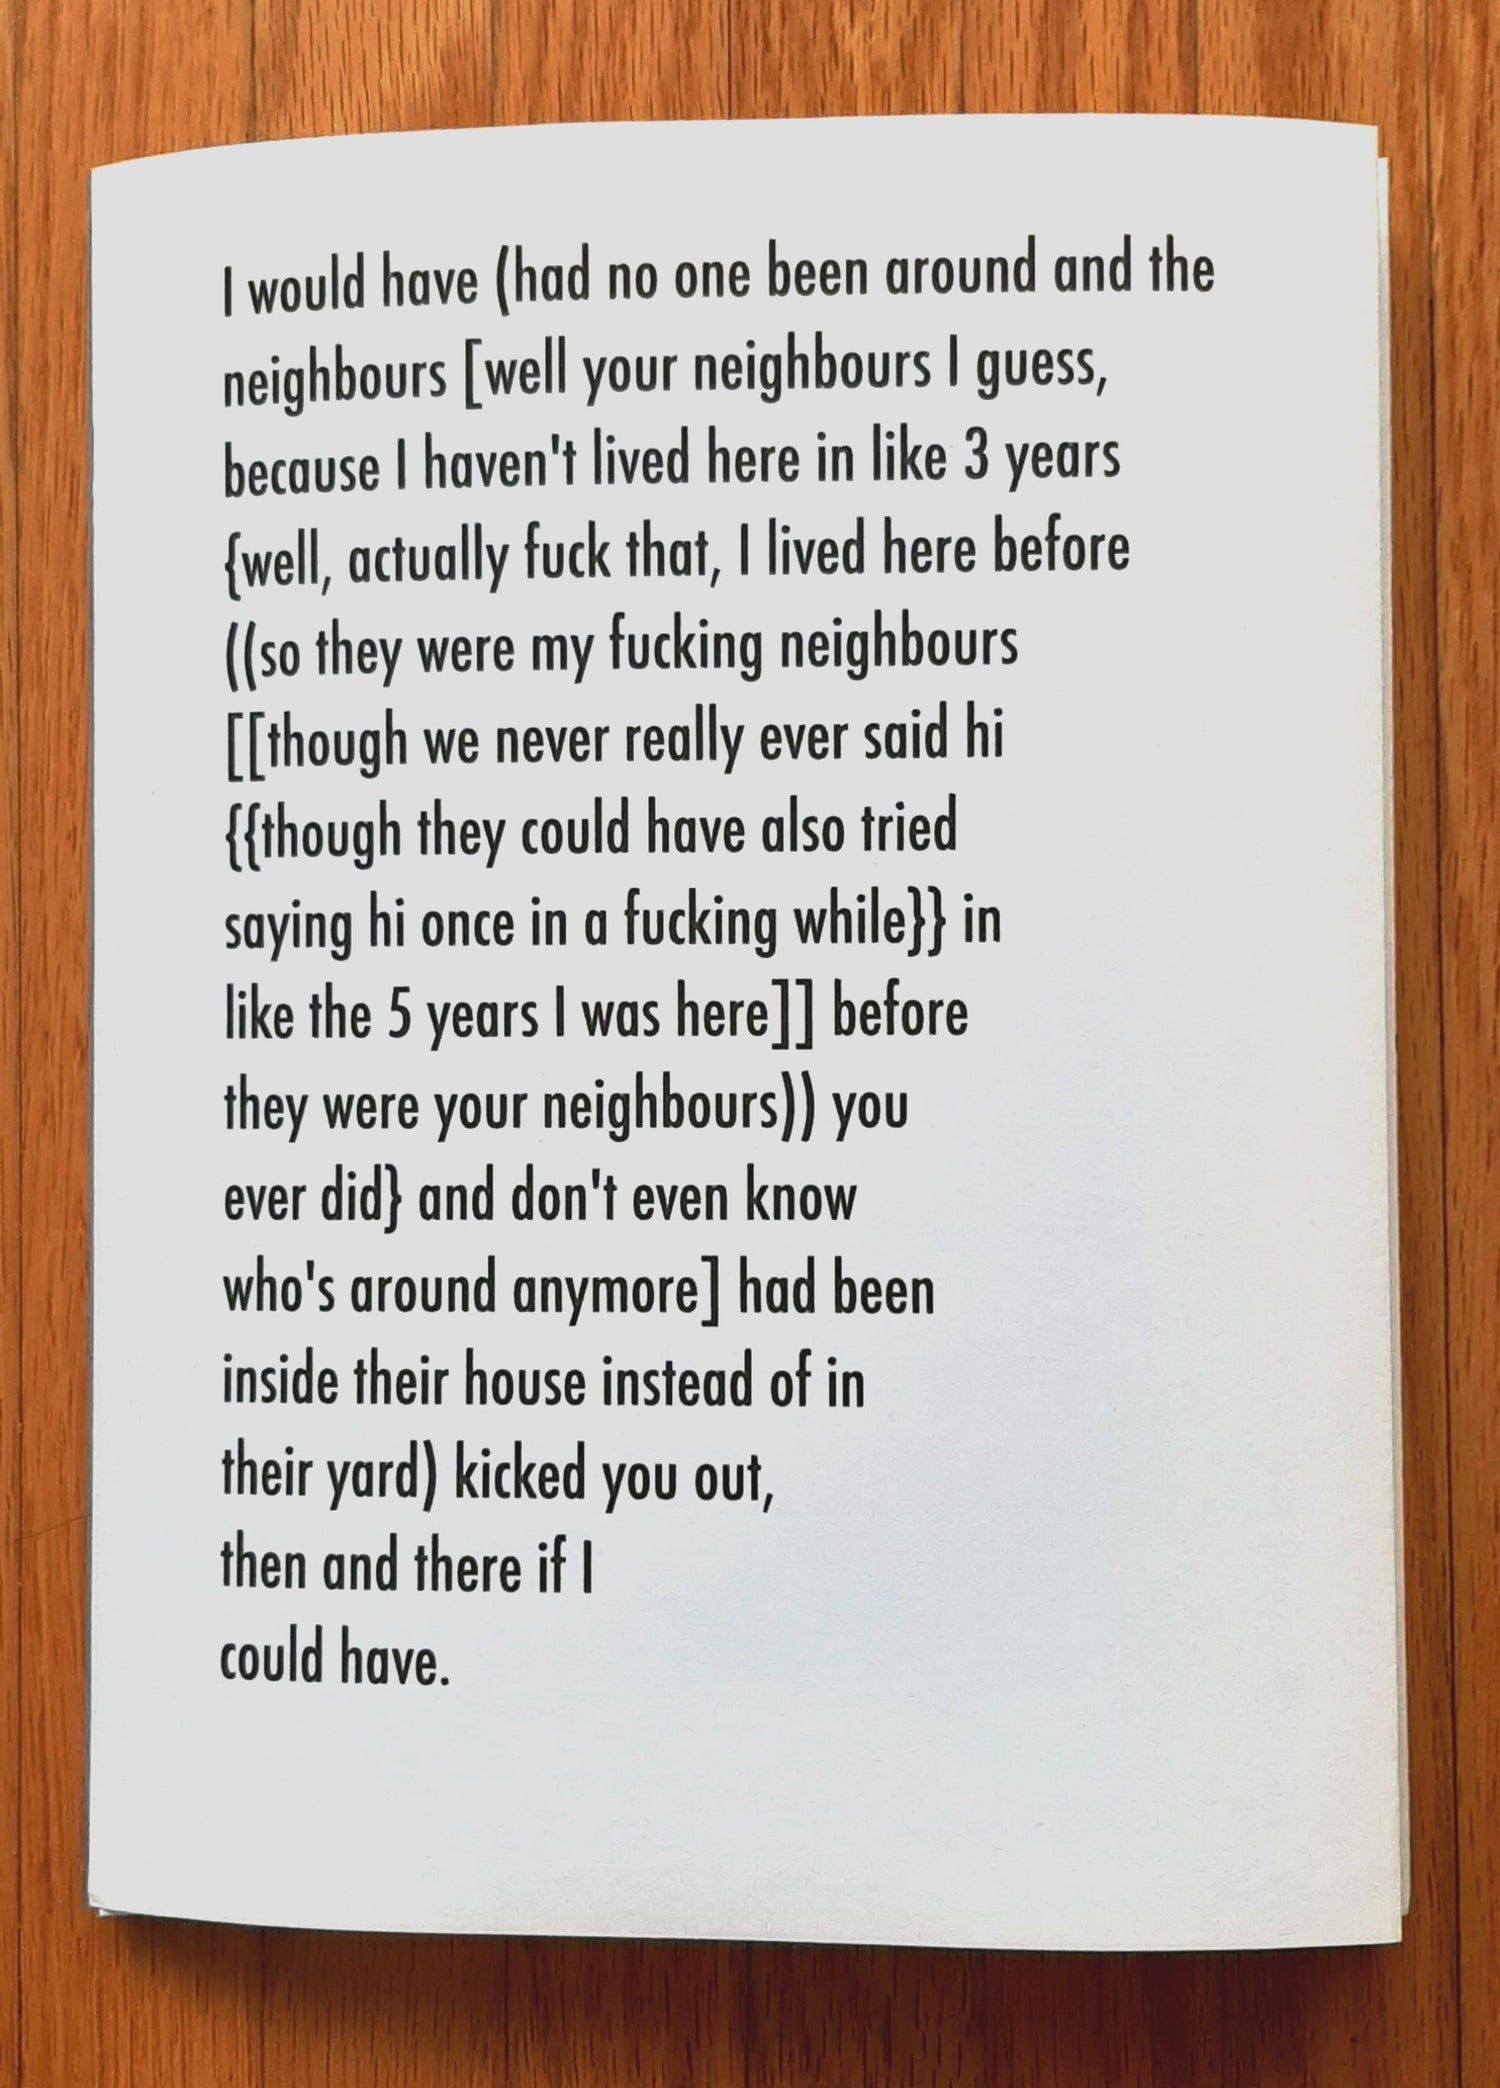 I would have (had no one been around and the
neighbours [well your neighbours I guess,
because I haven't lived here in like 3 years
{well, actually fuck that, I lived here before
((so they were my fucking neighbours
[[though we never really ever said hi
{{though they could have also tried
saying hi once in a fucking while}} in
like the 5 years I was here]] before
they were your neighbours)) you
ever did} and don't even know
who's around anymore] had been
inside their house instead of in
their yard) kicked you out,
then and there if I
could have.